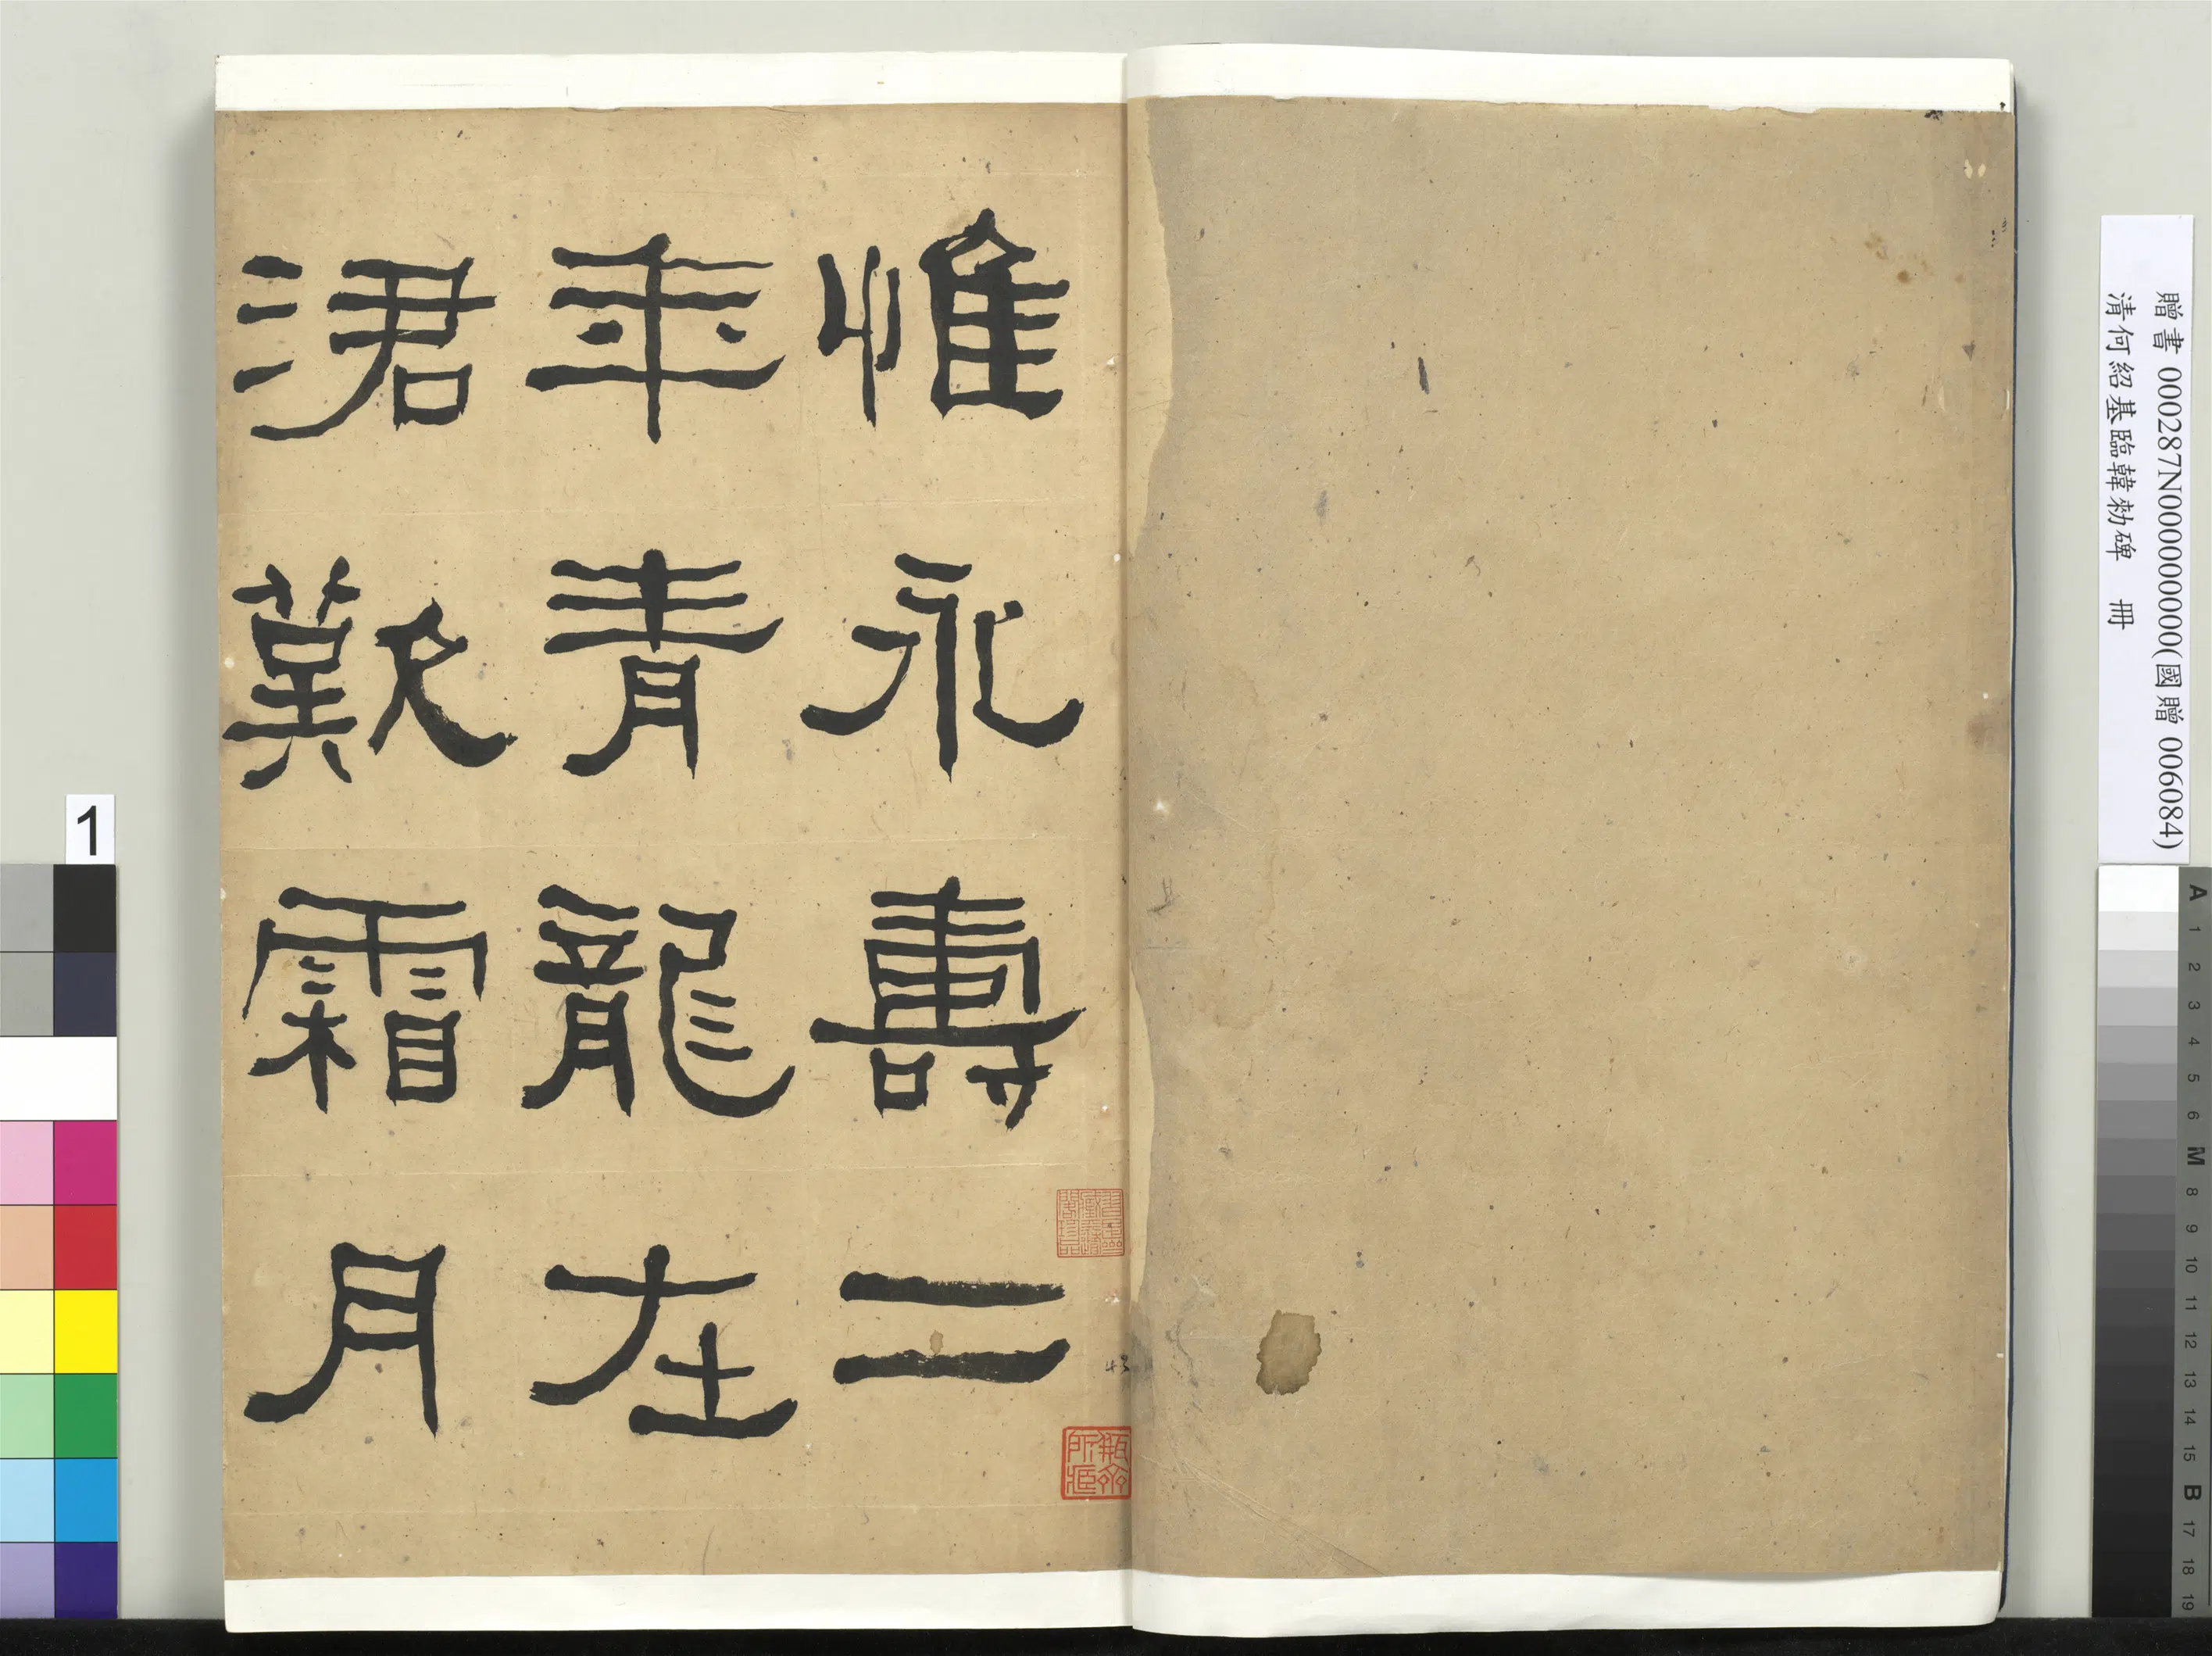 惟永壽二
年青龍在
涒歎霜月
贈書 000287N000000000(國贈 006084)
清何紹基臨韓勑碑 冊
1
A 1 2 3 4 5 6 M 8 9 10 11 12 13 14 15 B 17 18 19